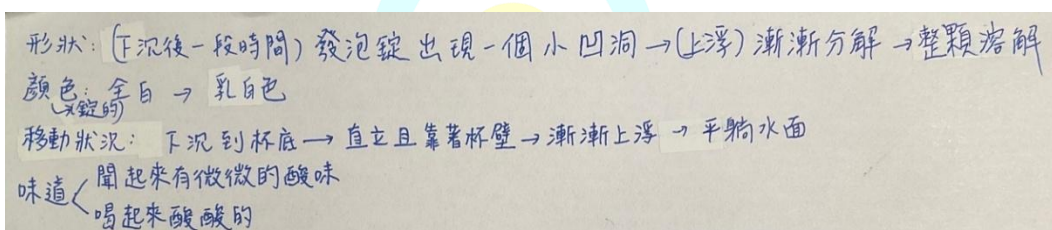 形狀:(下沉後一段時間)發泡錠出現一個小凹洞→(上浮)漸漸分解→整顆溶解
顏色:全白 → 乳白色
(錠的)
移動狀況: 下沉到杯底→直立且靠著杯壁→漸漸上浮→平躺水面
味道 聞起來有微微的酸味
喝起來酸酸的